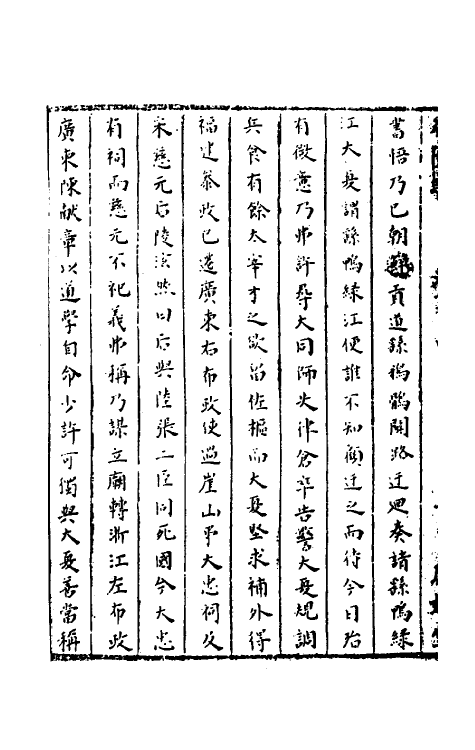 書悟乃已朝鮮貢道繇鴉鶻關路迂迴奏請繇鴨綠
江大夏謂繇鴨綠江便誰不知顧迂之而待今日殆
有微意乃弗許尋大同師失律倉卒告警大夏規調
兵食有餘太宰才之欲留佐樞而大夏堅求補外得
福建叅政已遷廣東右布政使過崖山弔大忠祠及
宋慈元后陵泫然曰后與陸張二臣同死國今大忠
有祠而慈元不祀義弗稱乃謀立廟轉浙江左布政
廣東陳獻章以道學自命少許可獨與大夏善當稱